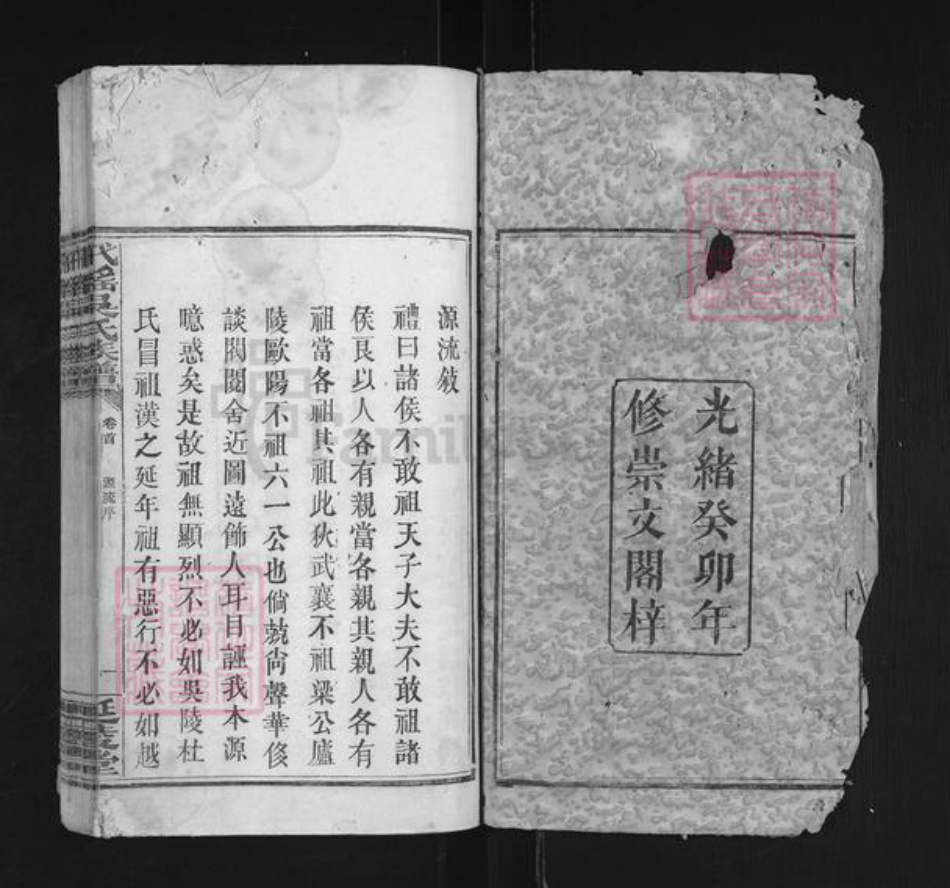 光緒癸卯年
修崇文閣梓
源流敘
禮曰諸侯不敢祖天子大夫不敢祖諸
侯艮以人各有親當各親其親人各有
祖當各祖其祖此狄武襄不祖梁公廬
陵歐陽不祖六一公也倘兢尙聲華侈
談閥閱舍近圖遠飾人耳目誣我木源
噫惑矣是故祖無顯烈不必如吳陵杜
氏冒祖漢之延年祖有惡行不必如越
吳氏族譜
卷首
源流序
一
堂